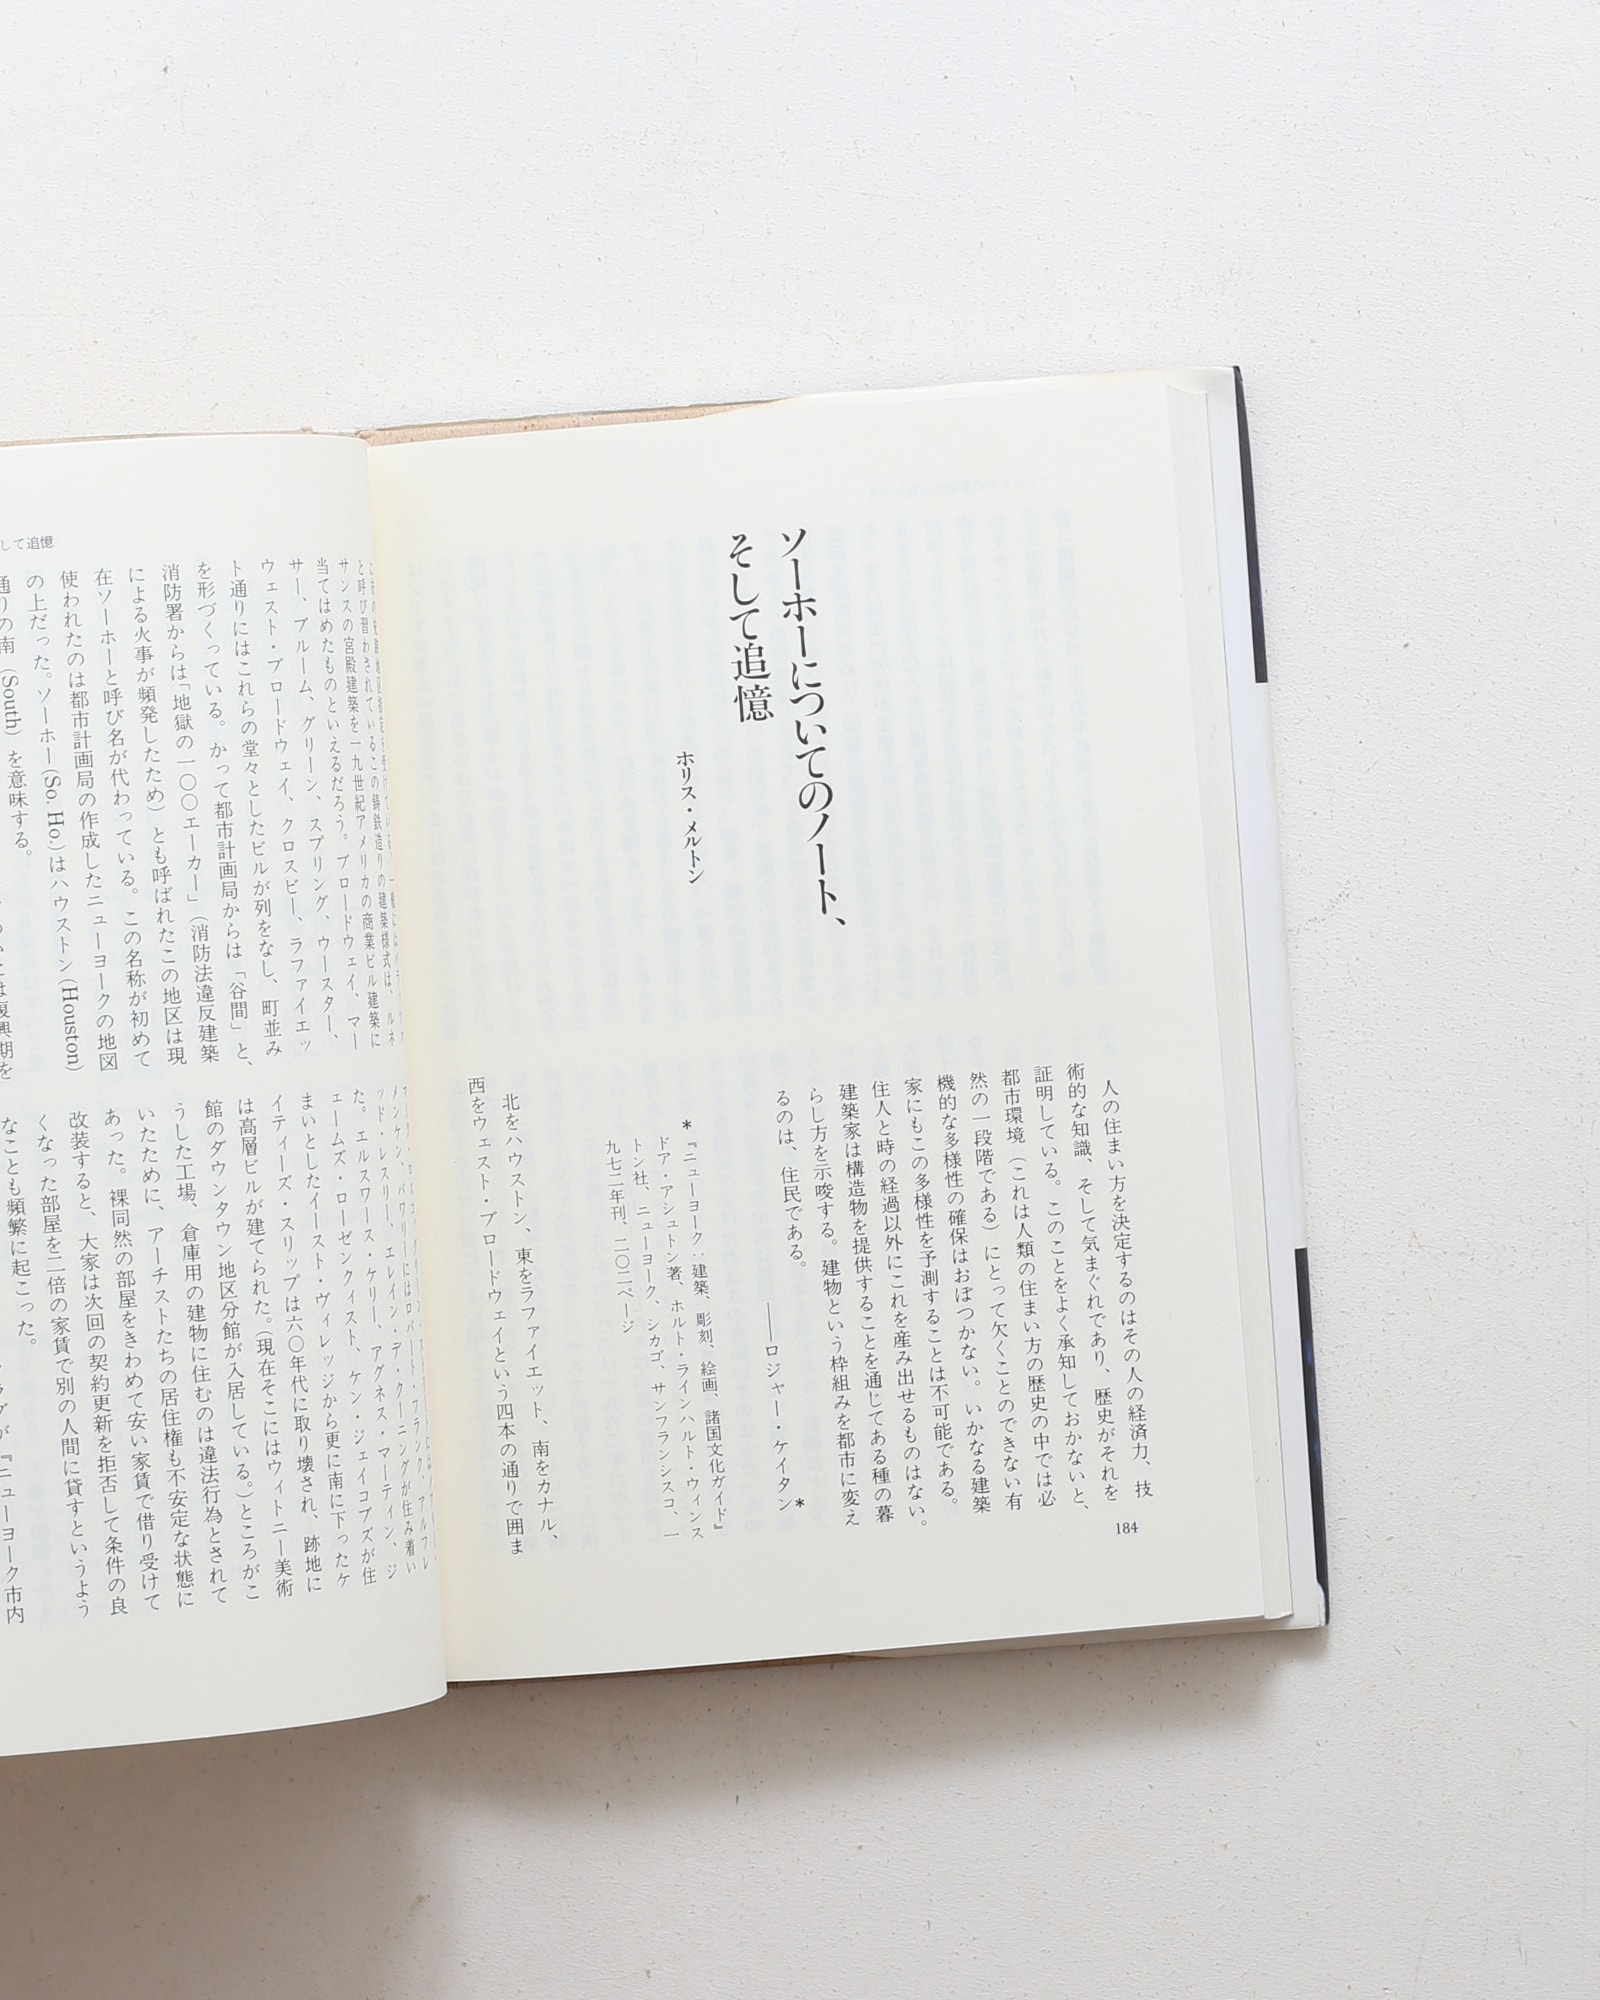 ソーホーについてのノート、
そして追憶
ホリス・メルトン
人の住まい方を決定するのはその人の経済力、技
術的な知識、そして気まぐれであり、歴史がそれを
証明している。このことをよく承知しておかないと、
都市環境（これは人類の住まい方の歴史の中では必
然の一段階である）にとって欠くことのできない有
機的な多様性の確保はおぼつかない。いかなる建築
家にもこの多様性を予測することは不可能である。
住人と時の経過以外にこれを産み出せるものはない。
建築家は構造物を提供することを通じてある種の暮
らし方を示唆する。建物という枠組みを都市に変え
るのは、住民である。
——ロジャー・ケイタン*
*『ニューヨーク：建築、彫刻、絵画、諸国文化ガイド』
ドア・アシュトン著、ホルト・ラインハルト・ウィンス
トン社、ニューヨーク、シカゴ、サンフランシスコ、一
九七二年刊、二〇二ページ
北をハウストン、東をラファイエット、南をカナル、
西をウェスト・ブロードウェイという四本の通りで囲ま
184
して追憶
と呼び習わされているこの鋳鉄造りの建築様式は、ルネ
サンスの宮殿建築を一九世紀アメリカの商業ビル建築に
当てはめたものといえるだろう。ブロードウェイ、マー
サー、ブルーム、グリーン、スプリング、ウースター、
ウェスト・ブロードウェイ、クロスビー、ラファイエッ
ト通りにはこれらの堂々としたビルが列をなし、町並み
を形づくっている。かつて都市計画局からは「谷間」と、
消防署からは「地獄の一〇〇エーカー」（消防法違反建築
による火事が頻発したため）とも呼ばれたこの地区は現
在ソーホーと呼び名が代わっている。この名称が初めて
使われたのは都市計画局の作成したニューヨークの地図
の上だった。ソーホー(So. Ho.)はハウストン(Houston)
通りの南（South）を意味する。
は復興期を
メンケン、バワリーにはロバート・フランク、アルフレ
ッド・レスリー、エレイン・デ・クーニングが住み着い
た。エルスワース・ケリー、アグネス・マーティン、ジ
ェームズ・ローゼンクィスト、ケン・ジェイコブズが住
まいとしたイースト・ヴィレッジから更に南に下ったケ
イティーズ・スリップは六〇年代に取り壊され、跡地に
は高層ビルが建てられた。（現在そこにはウィトニー美術
館のダウンタウン地区分館が入居している。）ところがこ
うした工場、倉庫用の建物に住むのは違法行為とされて
いたために、アーチストたちの居住権も不安定な状態に
あった。裸同然の部屋をきわめて安い家賃で借り受けて
改装すると、大家は次回の契約更新を拒否して条件の良
くなった部屋を二倍の家賃で別の人間に貸すというよう
なことも頻繁に起こった。
『ニューヨーク市内